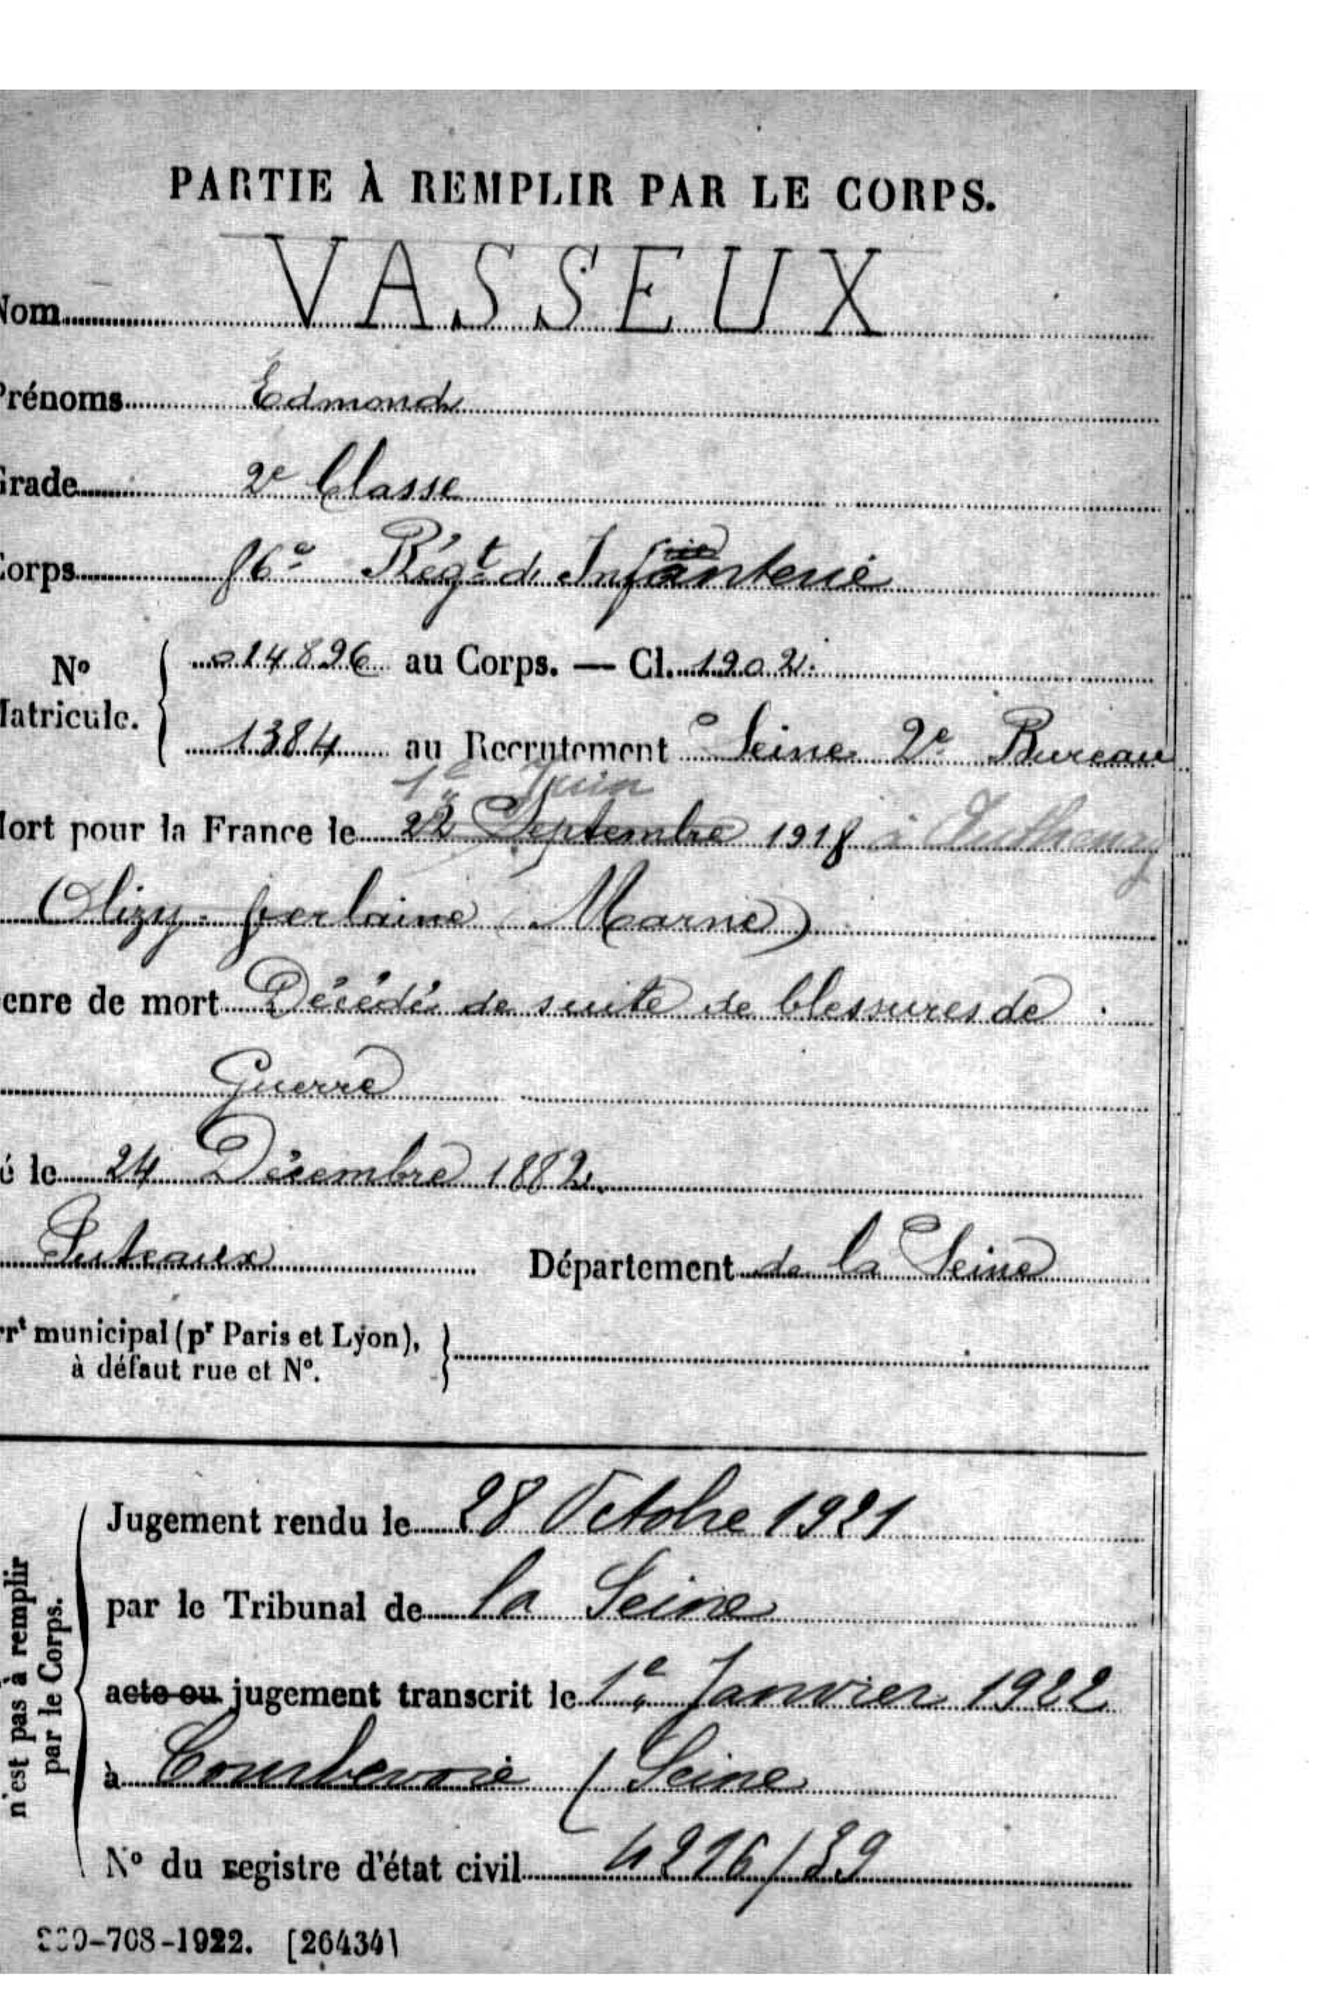 PARTIE À REMPLIR PAR LE CORPS.
Nom VASSEUX
Prénoms Edmond
Grade 2e Classe
Corps 86e Régt de Infanterie
No Matricule. 014896 au Corps. — Cl. 1902.
1384 au Recrutement Seine 2e Bureau
Mort pour la France le 22 Septembre 1918 à
1er Juin
(Marne)
enre de mort Décédé de suite de blessures de
Guerre
é le 24 Décembre 1882
Puteaux Département de la Seine
rrt municipal (pr Paris et Lyon),
à défaut rue et No.
n'est pas à remplir
par le Corps.
Jugement rendu le 28 Octobre 1921
par le Tribunal de la Seine
acte ou jugement transcrit le 1er Janvier 1922
à Courbevoie (Seine
No du registre d'état civil 4226/39
-708-1922. [26434]